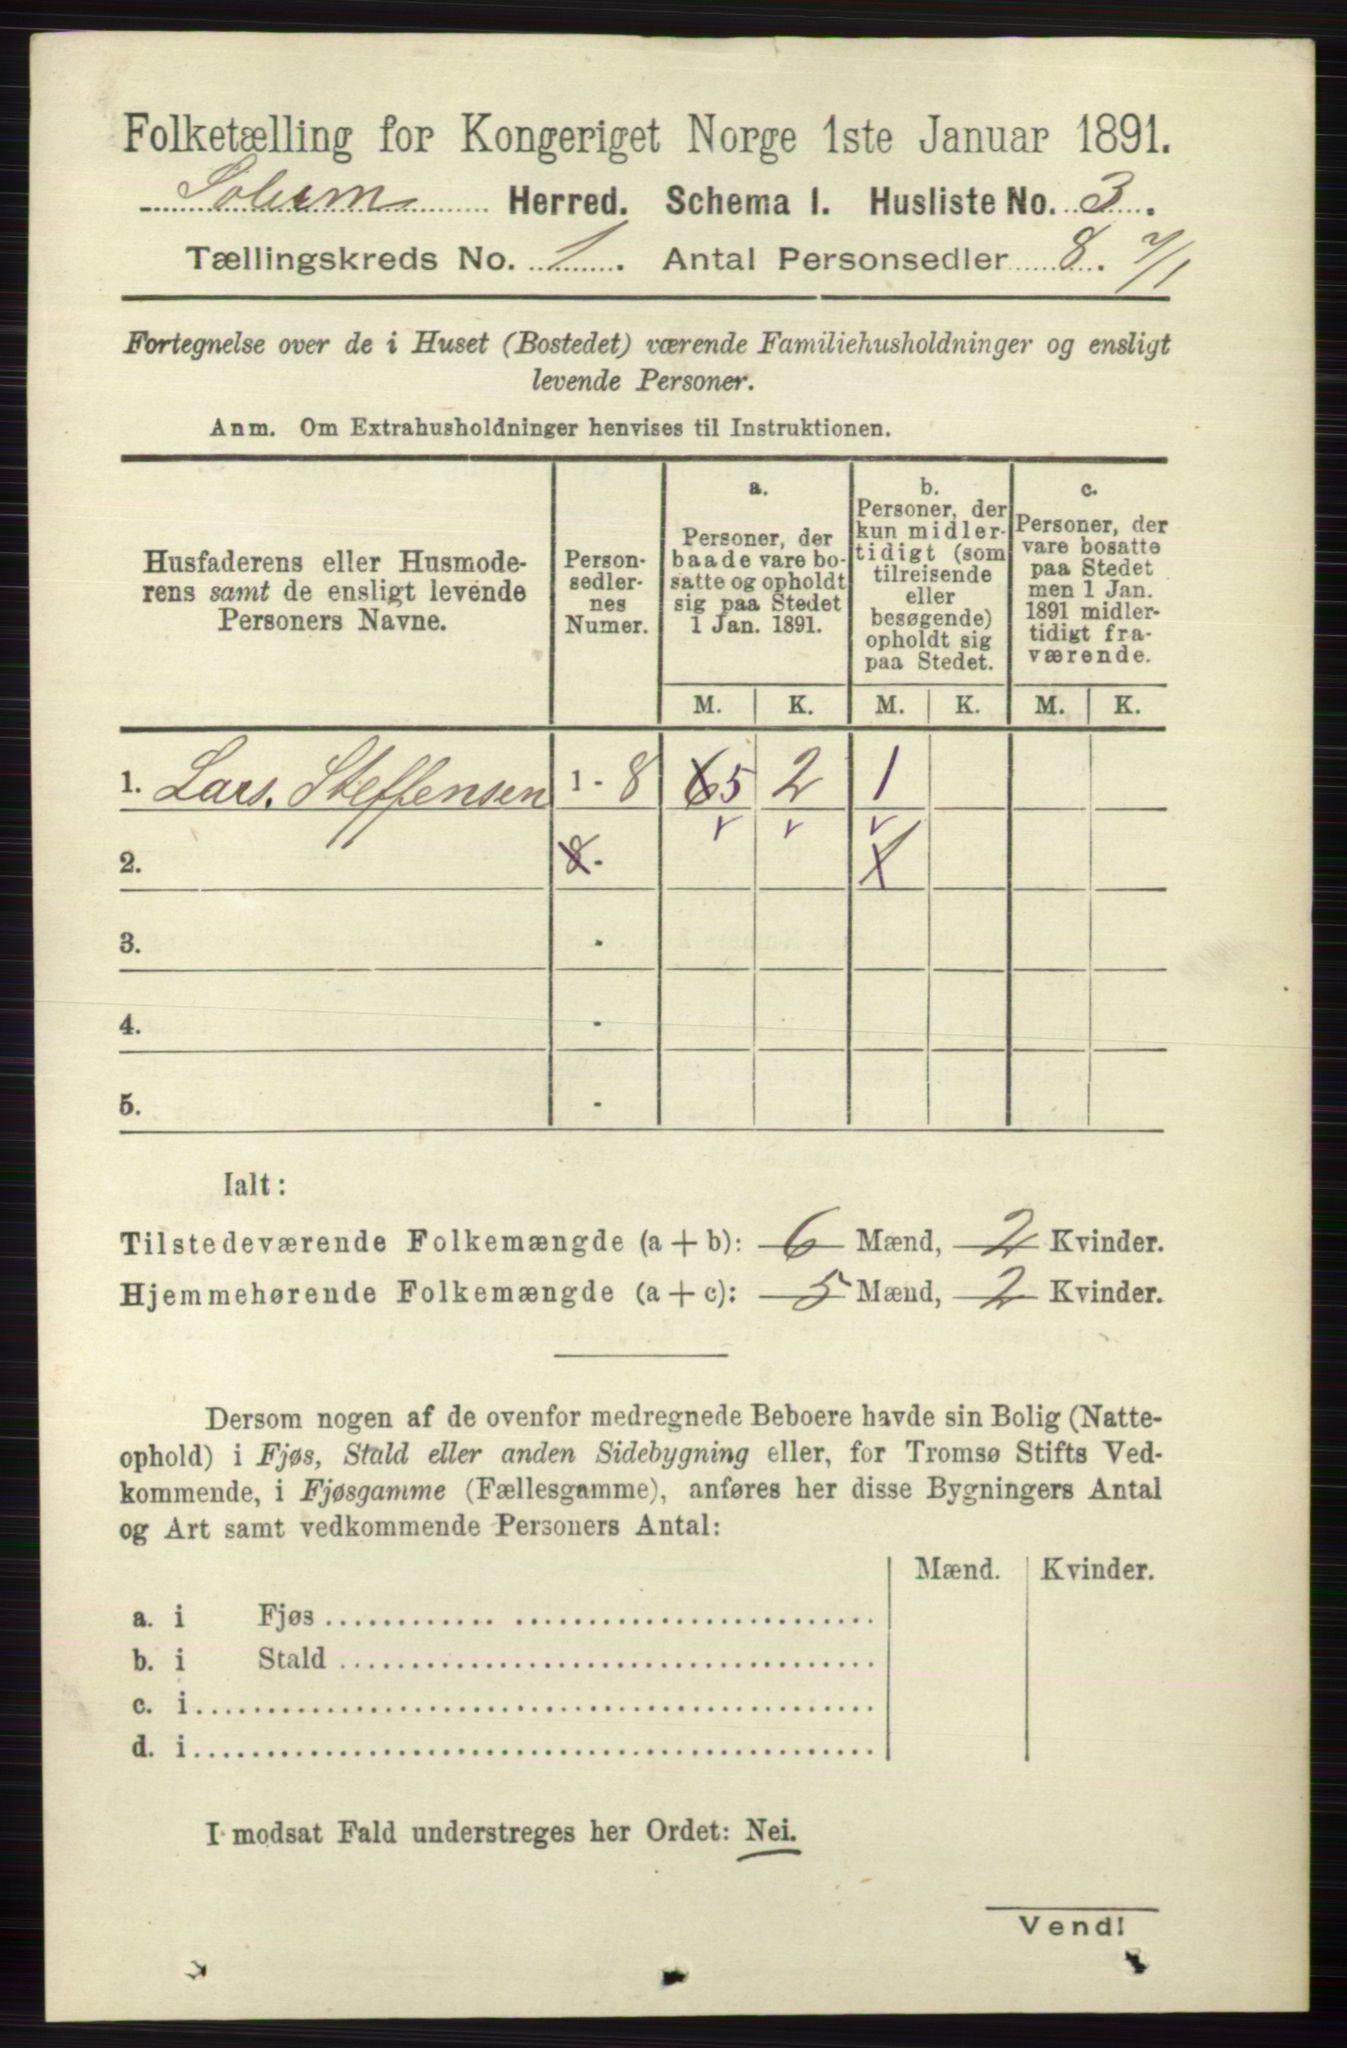 Folketælling for Kongeriget Norge 1ste Januar 1891.
Solum Herred. Schema I. Husliste No. 3.
Tællingskreds No. 1. Antal Personsedler 8. 7/1
Fortegnelse over de i Huset (Bostedet) værende Familiehusholdninger og ensligt
levende Personer.
Anm. Om Extrahusholdninger henvises til Instruktionen.
Husfaderens eller Husmode-
rens samt de ensligt levende
Personers Navne.
Person-
sedler-
nes
Numer.
a.
Personer, der
baade vare bo-
satte og opholdt
sig paa Stedet
1 Jan. 1891.
b.
Personer, der
kun midler-
tidigt (som
tilreisende
eller
besøgende)
opholdt sig
paa Stedet.
c.
Personer, der
vare bosatte
paa Stedet
men 1 Jan.
1891 midler-
tidigt fra-
værende.
M. K. M. K. M. K.
1. Lars. Steffensen 1 - 8 6 5 2 1
2. 8 - 1
3. -
4. -
5. -
Ialt:
Tilstedeværende Folkemængde (a + b): 6 Mænd, 2 Kvinder.
Hjemmehørende Folkemængde (a + c): 5 Mænd, 2 Kvinder.
Dersom nogen af de ovenfor medregnede Beboere havde sin Bolig (Natte-
ophold) i Fjøs, Stald eller anden Sidebygning eller, for Tromsø Stifts Ved-
kommende, i Fjøsgamme (Fællesgamme), anføres her disse Bygningers Antal
og Art samt vedkommende Personers Antal:
Mænd. Kvinder.
a. i Fjøs
b. i Stald
c. i
d. i
I modsat Fald understreges her Ordet: Nei.
Vend!